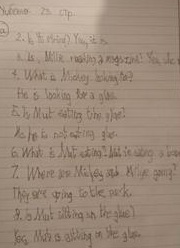 23 стр.
2. Is he Yes, is
3. Is Millie reading a magazine? Yes, she
4. What is Mickey looking for?
He is looking for a glue.
5. Is Mut eating the glue?
No he is not eating glue.
6. What is Mut eating? Mut is eating a
7. Where are Mickey and Millie going?
They are going to the park.
8. Is Mut sitting on the glue?
Yes, Mut is sitting on the glue.